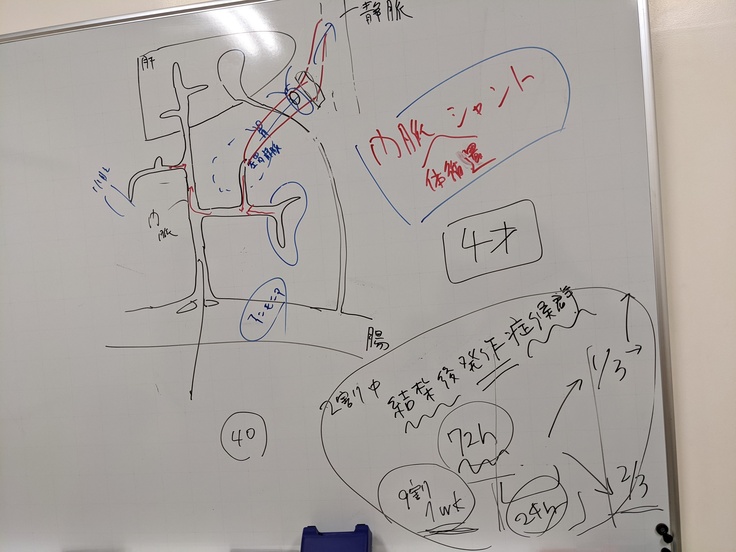 静脈
肝
胃静脈
門脈
門脈 シャント
体循環
4才
アンモニア
腸
2割り中
結紮後発作症候群
1/3
72h
40
9割
1wk
24h
2/3